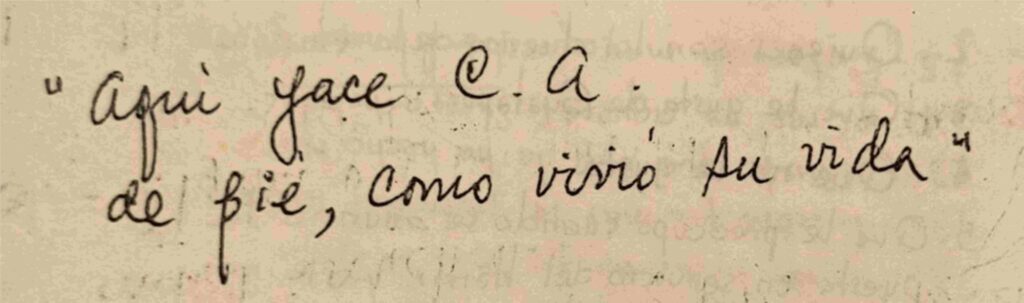 "Aquí yace C. A.
de pié, como vivió su vida"